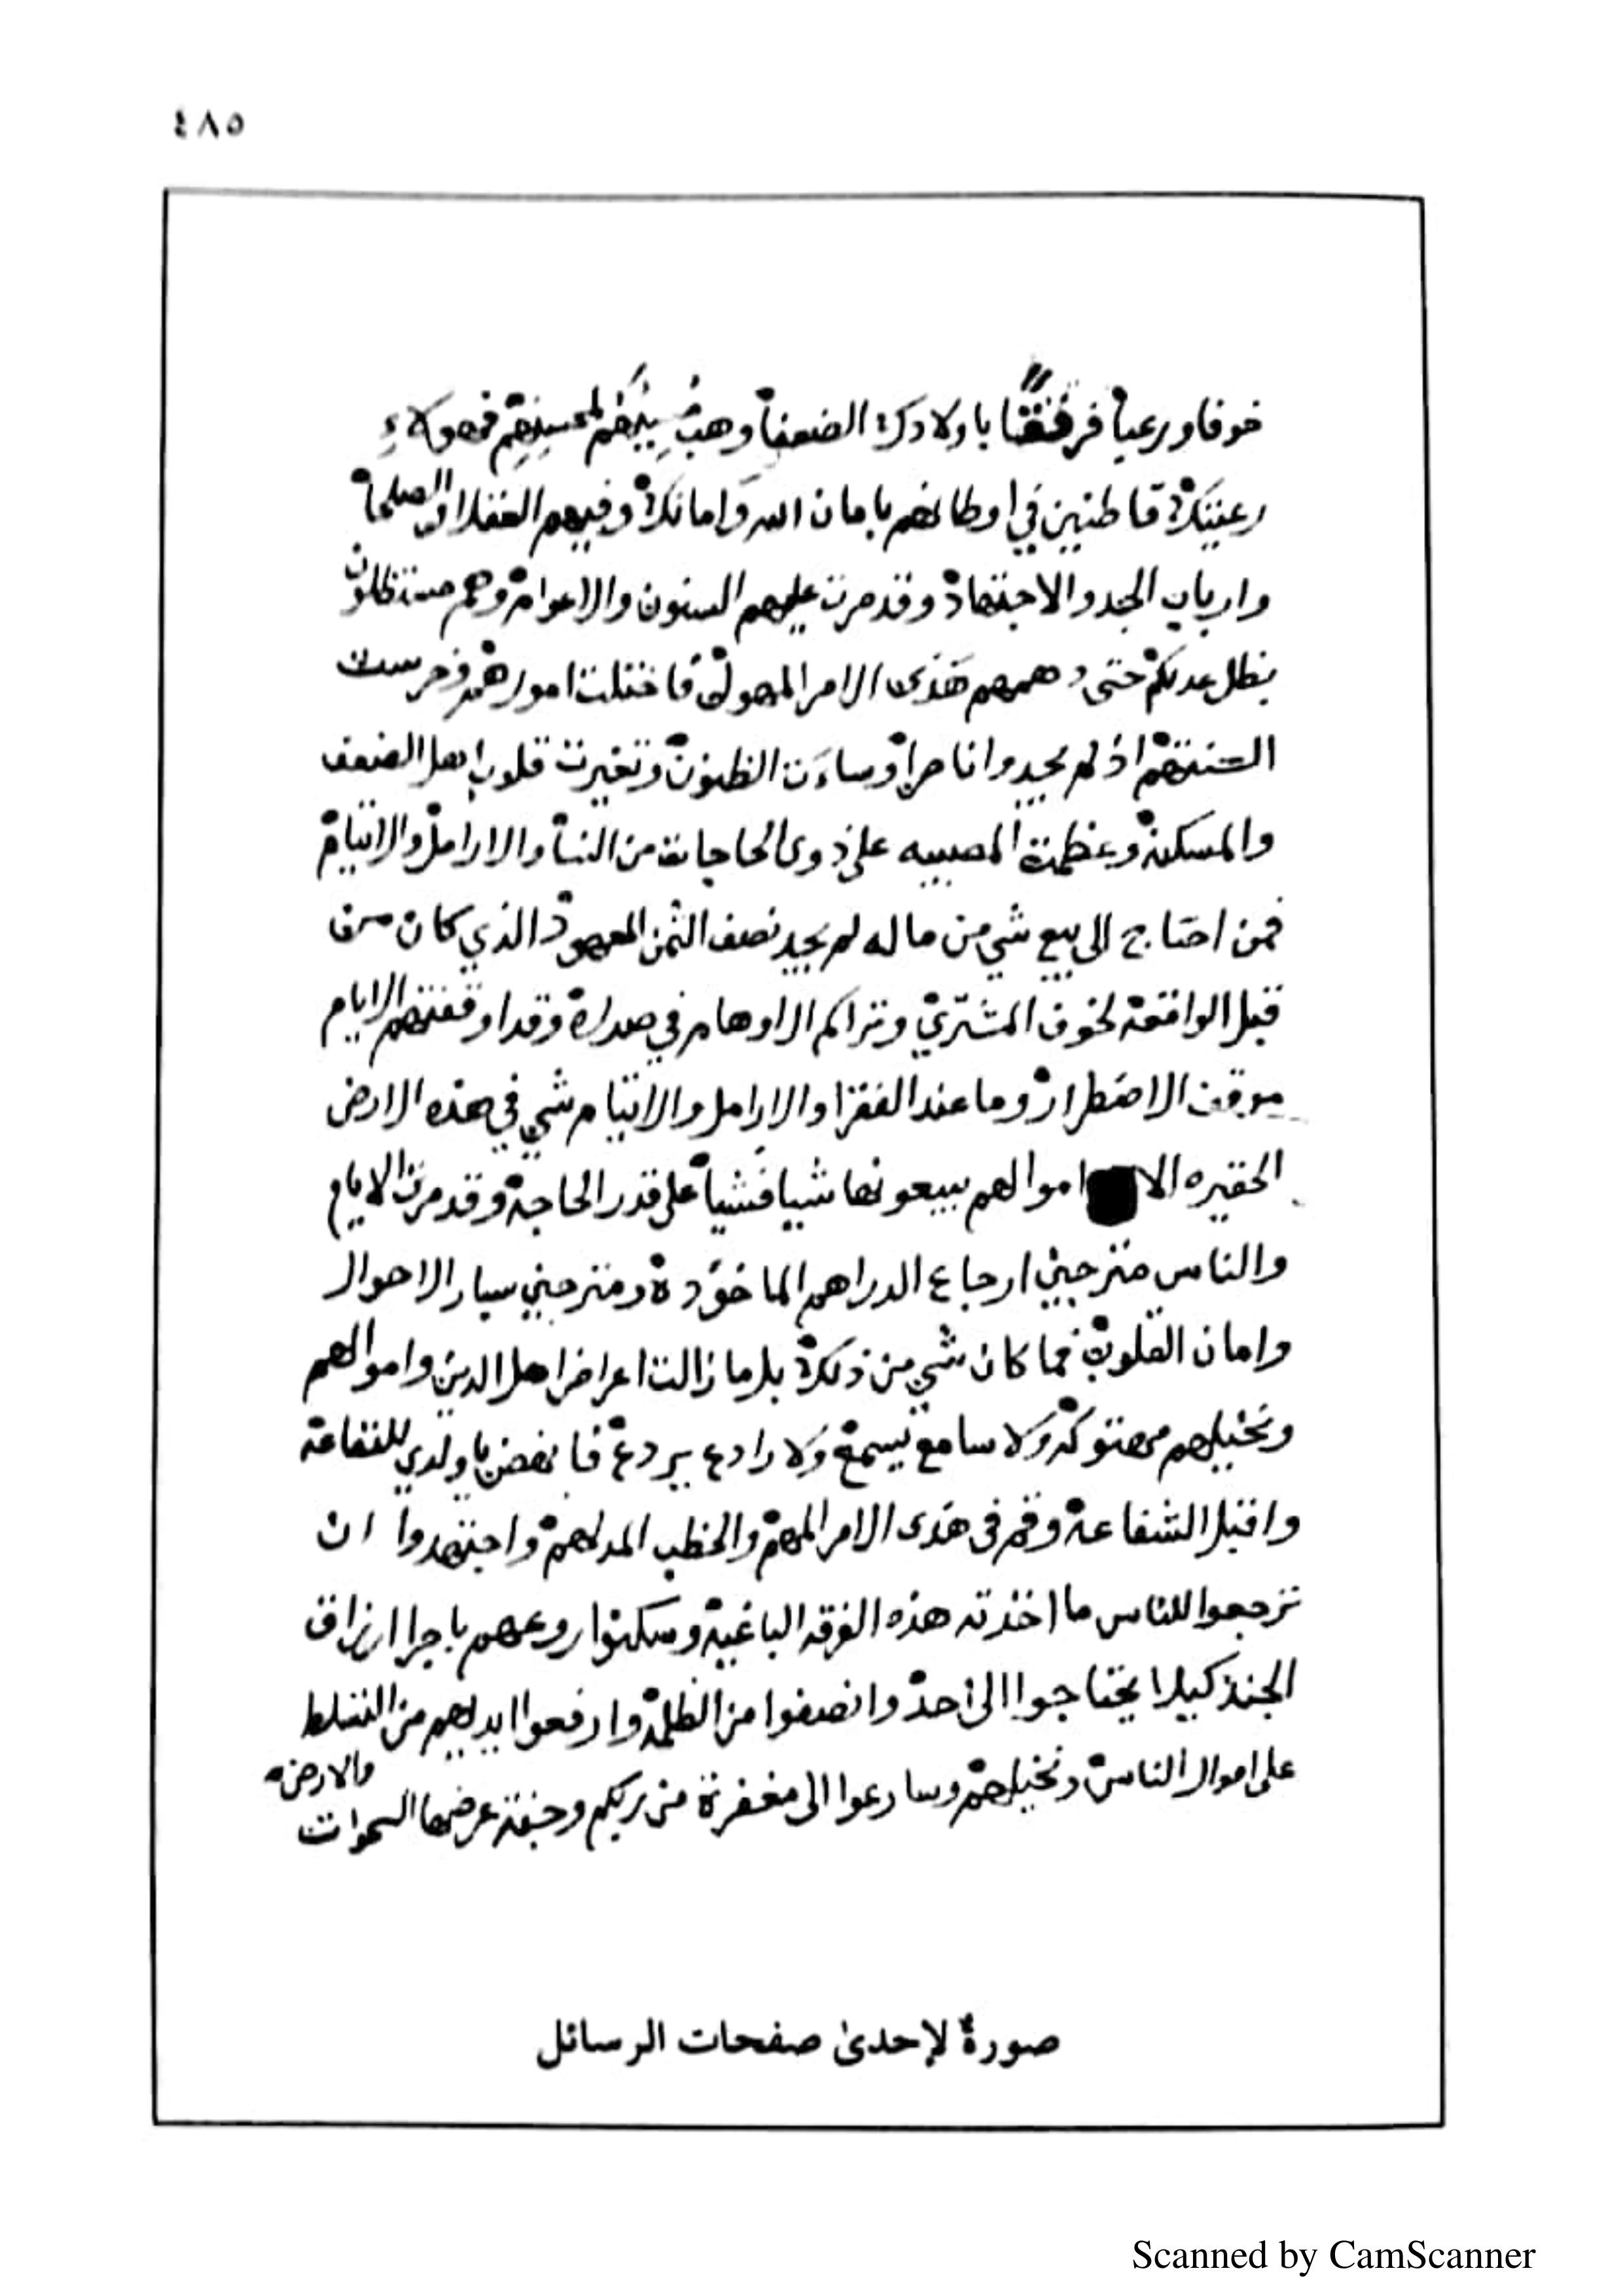 ٤٨٥
خوفا ورعبا فرفقا باولادك الضعفا وهب مسيئهم لمحسنهم فهولاء
رعيتك قاطنين في اوطانهم بامان الله وامانك وفيهم الفضلا والصلحا
وارباب الجد والاجتهاد وقد مرت عليهم السنون والاعوام وهم مستظلون
بظل عدلكم حتى دهمهم هذى الامر المهول فاختلت امورهم وخرست
السنتهم اذ لم يجدوا ناصرا وساءت الظنون وتغيرت قلوب اهل الضعف
والمسكنة وعظمت المصيبه على ذوى الحاجات من النسا والارامل والايتام
فمن احتاج الى بيع شي من ماله لم يجد نصف الثمن المعهود الذي كان من
قبل الواقعة لخوف المشتري وتراكم الاوهام في صدره وقد اوقفتهم الايام
موقف الاضطرار وما عند الفقرا والارامل والايتام شي في هذه الارض
الحقيره الا اموالهم يبيعونها شيا فشيا على قدر الحاجة وقد مرت الايام
والناس مترجيين ارجاع الدراهم الماخوذة ومترجيي سيار الاحوال
وامان القلوب فما كان شي من ذلك بل ما زالت اعراض اهل الدين واموالهم
ونخيلهم مهتوكة ولا سامع يسمع ولا رادع يردع فانهض يا ولدي للشفاعة
واقبل الشفاعة وقم في هذى الامر المهم والخطب المدلهم واجتهدوا ان
ترجعوا للناس ما اخذته هذه الفرقه الباغية وسكنوا روعهم باجرا ارزاق
الجند كيلا يحتاجوا الى احد وانصفوا من الظلمة وارفعوا ايديهم من التسلط
على اموال الناس ونخيلهم وسارعوا الى مغفرة من ربكم وجنة عرضها السموات
والارض
صورةٌ لإحدىٰ صفحات الرسائل
Scanned by CamScanner